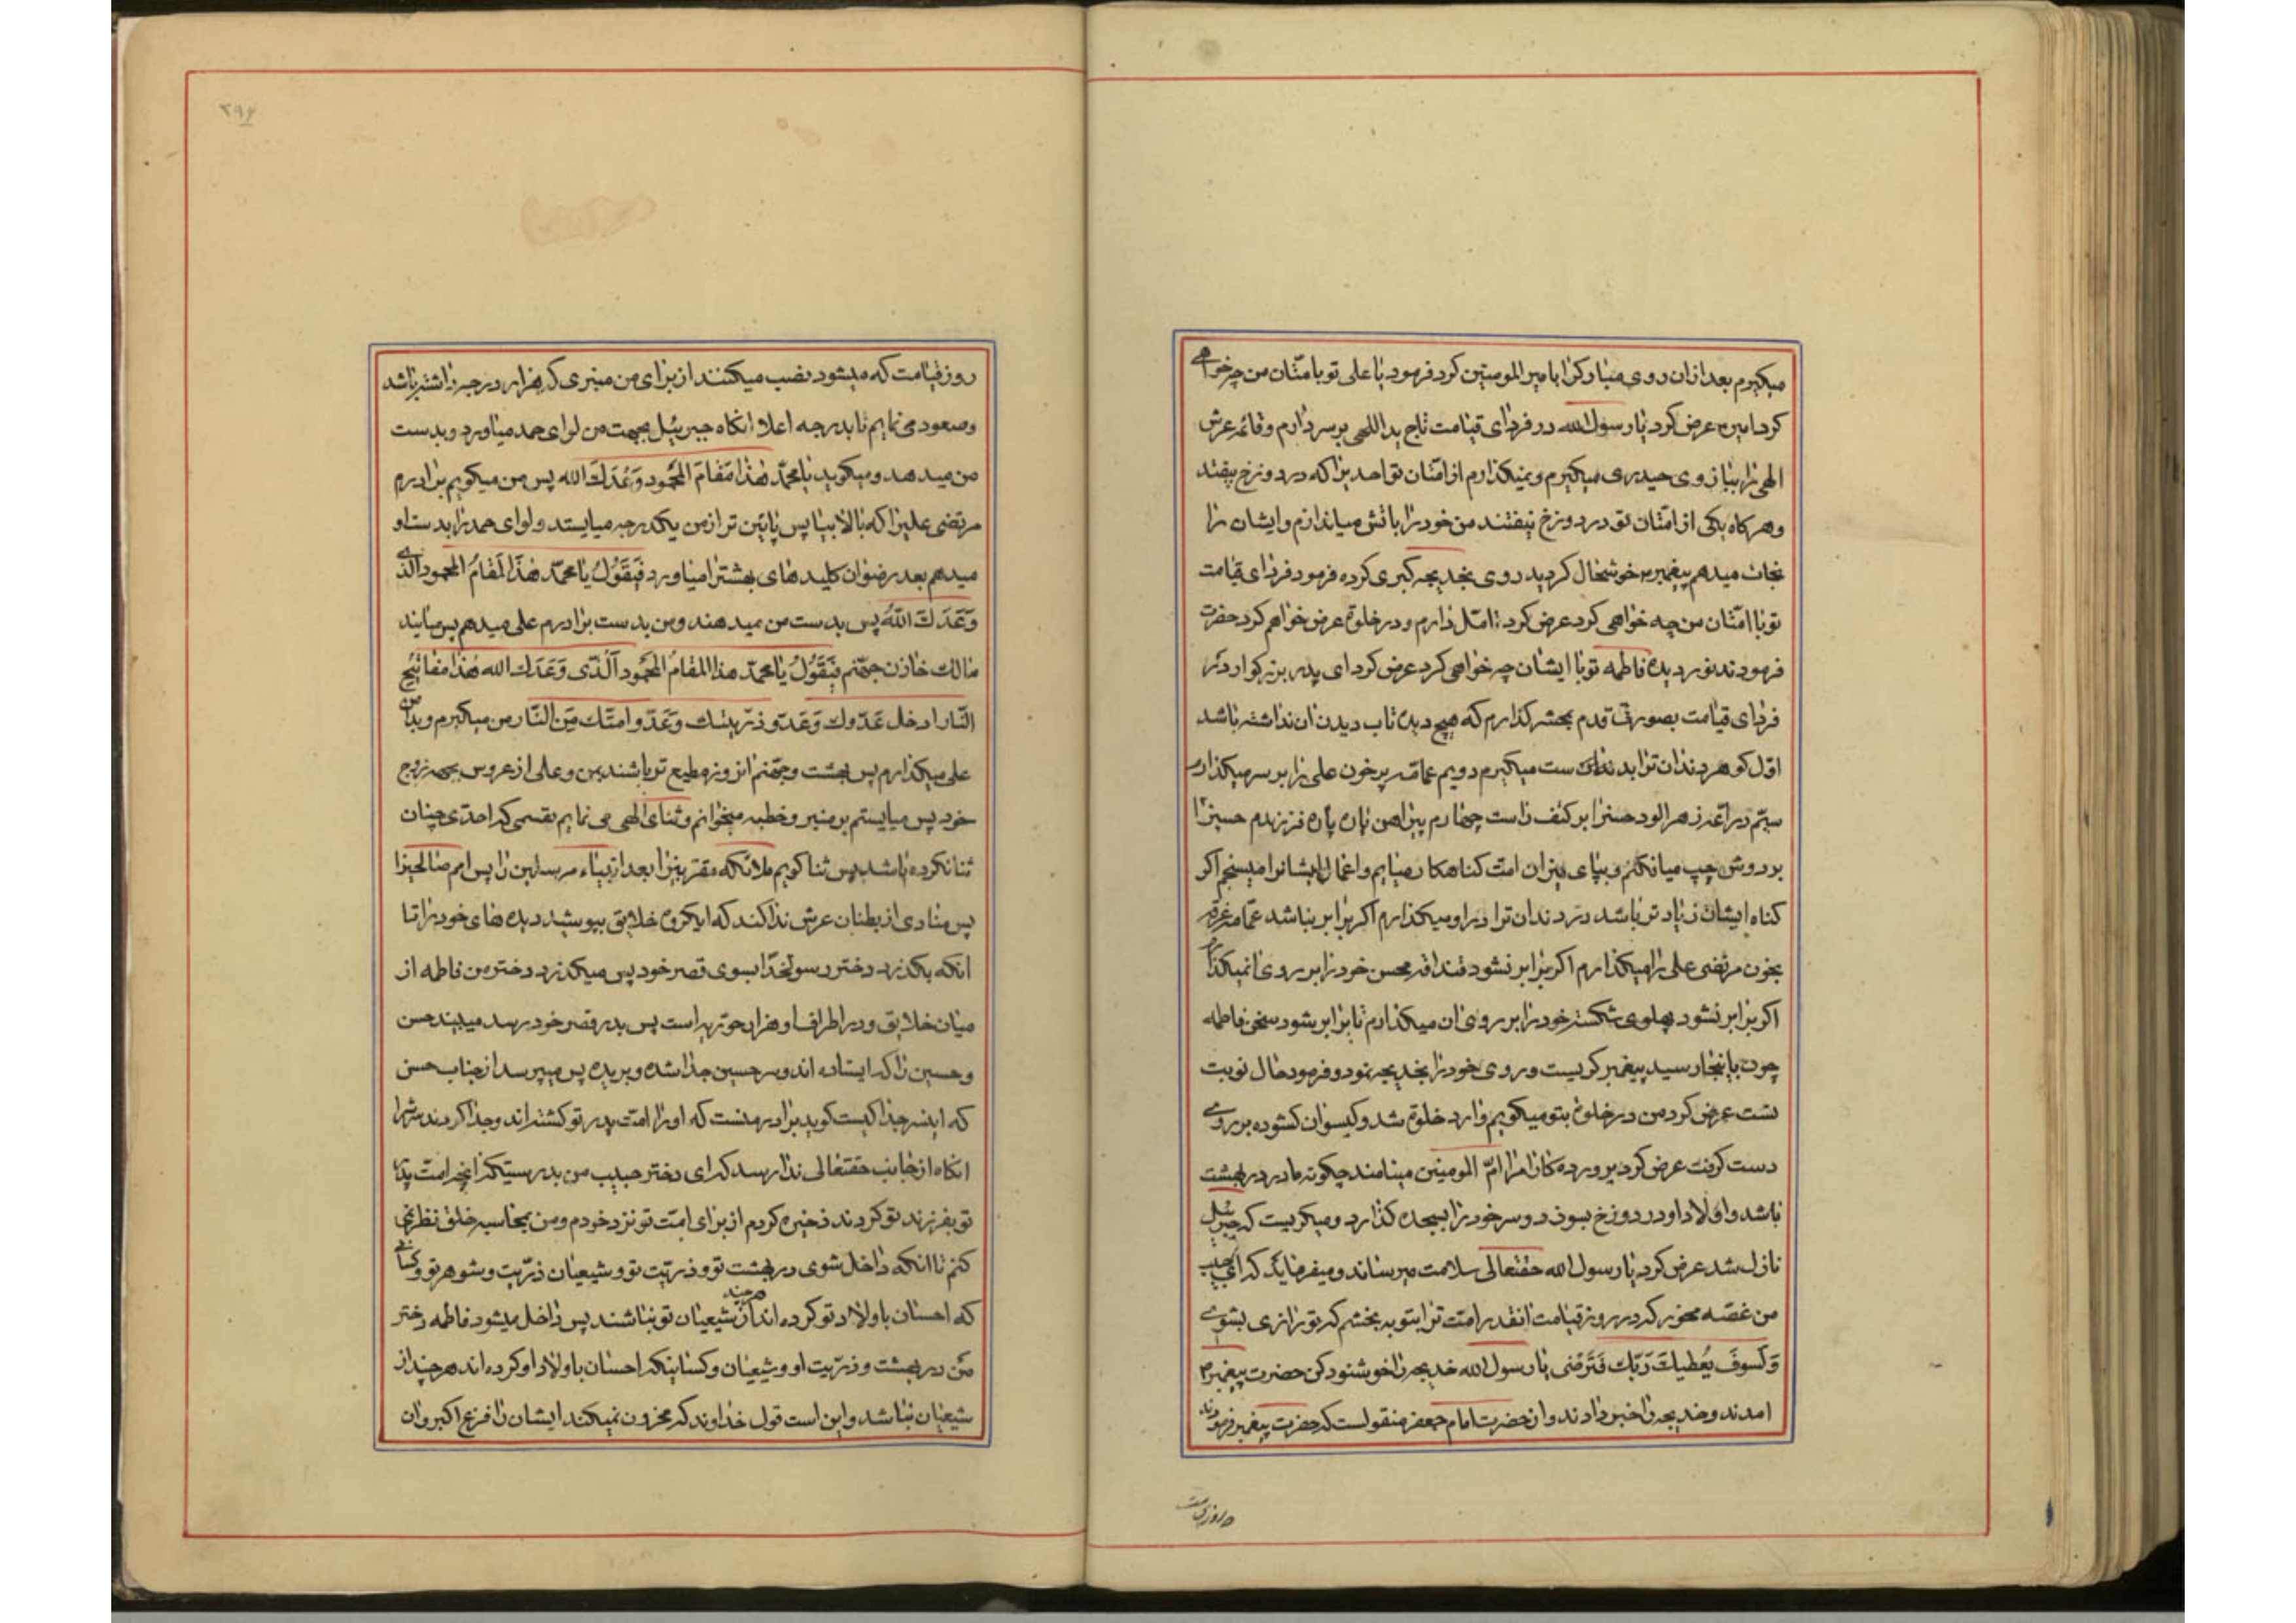 میکیرم بعد از ان روی مبارکرا بامیر المومنین کرد فرمود یا علی تو با امتان من چه خواهی
کرد امیر عرض کرد یا رسول الله در فردای قیامت تاج یداللهی بر سر دارم و قائمه عرش
الهی را ببازوی حیدری میکیرم و نمیکذارم از امتان تو احدیرا که در دوزخ بیفتد
و هر کاه یکی از امتان تو در دوزخ بیفتند من خود را باتش میاندازم و ایشان را
نجات میدهم پیغمبر خوشحال کردید روی بخدیجه کبری کرده فرمود فردای قیامت
تو با امتان من چه خواهی کرد عرض کرد تامل دارم و در خلوة عرض خواهم کرد حضرت
فرمودند نور دیده فاطمه تو با ایشان چه خواهی کرد عرض کرد ای پدر بزرکوار در
فردای قیامت بصورتی قدم بمحشر کذارم که هیچ دیده تاب دیدن ان نداشته باشد
اول کوهر دندان ترا بدست میکیرم دویم عمامه پرخون علی را بر سر میکذارم
سیم دراعه زهر الود حسنرا بر کتف راست چهارم پیراهن پاره پاره فرزندم حسینرا
بر دوش چپ میافکنم و بپای میزان امت کناهکار میایم و اعمال ایشانرا میسنجم اکر
کناه ایشان زیادتر باشد در دندان ترا در او میکذارم اکر برابر نباشد عمامه غرقه
بخون مرتضی علی را میکذارم اکر برابر نشود قنداقه محسن خود را بر روی ان میکذارم
اکر برابر نشود پهلوی شکسته خود را بر روی ان میکذارم تا برابر شود سخن فاطمه
چون باینجا رسید پیغمبر کریست و روی خود را بخدیجه نمود و فرمود حال نوبت
تست عرض کرد من در خلوة بتو میکویم وارد خلوة شد و کیسوان کشوده بر روی
دست کرفت عرض کرد پروردکارا مرا ام المومنین مینامند چکونه مادر در بهشت
باشد و اولاد او در دوزخ بسوزد و سر خود را بسجده کذارد و میکریست که جبرئیل
نازل شد عرض کرد یا رسول الله حقتعالی سلامت میرساند و میفرماید که ای حبیب
من غصه مخور که در روز قیامت انقدر امت ترا بتو ببخشم که تو راضی بشوی
وَلَسوفَ یُعطیكَ رَبّك فَتَرضی یا رسول الله خدیجه را خوشنود کن حضرت پیغمبر
امدند و خدیجه را خبر دادند و از حضرت امام جعفر منقولست که حضرت پیغمبر فرمودند
روز قیامت
۲۹۶
روز قیامت که میشود نصب میکنند از برای من منبری که هزار درجه داشته باشد
و صعود می نمایم تا بدرجه اعلا انکاه جبرئیل بجهت من لوای حمد میاورد و بدست
من میدهد و میکوید یا محمّد هٰذا مَقامَ المَحمود وَعَدَكَ الله پس من میکویم برادرم
مرتضی علیرا که بالا بیا پس پایین تر از من یکدرجه میایستد و لوای حمد را بدست او
میدهم بعد رضوان کلیدهای بهشترا میاورد فَیَقَوُلُ یا محمّد هٰذَا لَمَقامُ المحمود الّذی
وَعَدَكَ اللّهُ پس بدست من میدهند و من بدست برادرم علی میدهم پس میایند
مالك خازن جهنّم فَیَقَوُلُ یا محمّد هذا المَقامُ المَحمود الّذی وَعَدَك الله هٰذا مفاتیح
النّار ادخل عَدوك وَعَدو ذرّیتك وَعَدّو امتّك مِن النّار من میکیرم و بدامن
علی میکذارم پس بهشت و جهنم انروز مطیع تر باشند بمن و علی از عروس بجهه زوج
خود پس میایستم بر منبر و خطبه میخوانم و ثنای الهی می نمایم بقسمی که احدی چنان
ثنا نکرده باشد پس ثنا کویم ملائکه مقربینرا بعد انبیاء مرسلین را پس امم صالحینرا
پس منادی از بطنان عرش ندا کند که ایکروه خلایق بپوشید دیده های خود را تا
انکه بکذرد دختر رسولخدا بسوی قصر خود پس میکذرد دختر من فاطمه از
میان خلایق و در اطراف او هزار حوریه است پس بدر قصر خود رسد میبیند حسن
و حسین را که ایستاده اند و سر حسین جدا شده و بریده پس میپرسد از جناب حسن
که اینسر جدا کیست کوید برادر منست که او را امت پدر تو کشته اند و جدا کردند سرشرا
انکاه از جانب حقتعالی ندا رسد که ای دختر حبیب من بدرستیکه انچه امت پدر
تو بفرزند تو کردند ذخیره کردم از برای امت تو نزد خودم و من بمحاسبه خلق نظر نمی
کنم تا انکه داخل شوی در بهشت تو و ذریّت تو و شیعیان ذرّیت و شوهر تو و کسانی
که احسان باولاد تو کرده اند هرچند از شیعیان تو نباشند پس داخل میشود فاطمه دختر
من در بهشت و ذرّیت او و شیعیان و کسانیکه احسان باولاد او کرده اند هرچند از
شیعیان نباشد و این است قول خداوند که محزون نمیکند ایشان را فزع اکبر و ان